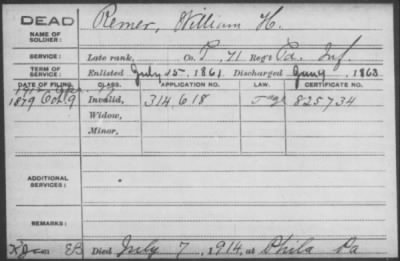 DEAD
NAME OF SOLDIER:
Remer, William H.
SERVICE:
Late rank, Co. P, 71 Reg't Pa. Inf.
TERM OF SERVICE:
Enlisted July 25, 1861 Discharged , 1863
DATE OF FILING. CLASS. APPLICATION NO. LAW. CERTIFICATE NO.
1879 Oct. 9 Invalid, 314,618 825734
Widow,
Minor,
ADDITIONAL SERVICES:
REMARKS:
EB Died July 7, 1914, at Phila Pa